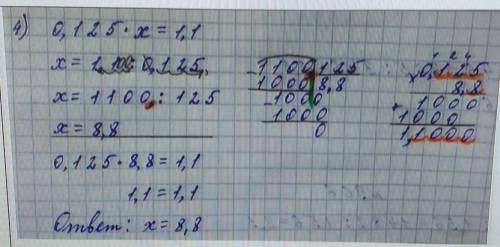 4) 0,125 · x = 1,1
x = 1,100 : 0,125
x = 1100 : 125
x = 8,8
0,125 · 8,8 = 1,1
1,1 = 1,1
Ответ: x = 8,8
1100 125
1000 8,8
1000
1000
0
1 2 4
0,125
8,8
1000
1000
1,1000